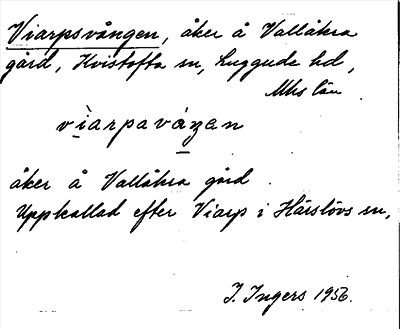 Viarpsvången, åker å Vallåkra
gård, Kvistofta sn, Luggude hd,
Mhs län.
vìarpavåŋen
åker å Vallåkra gård.
Uppkallad efter Viarp i Härslövs sn,
I. Ingers 1956.